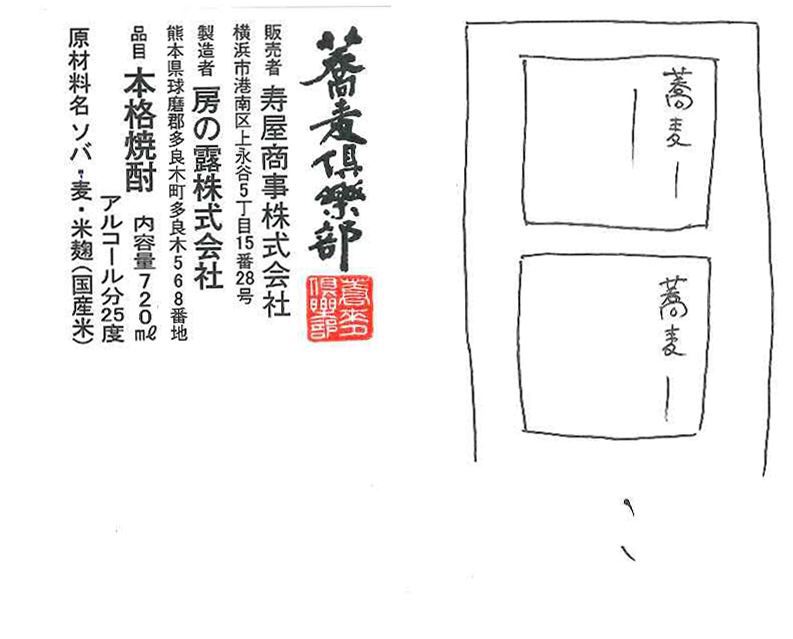 蕎麦倶樂部
蕎麦倶樂部
販売者 寿屋商事株式会社
横浜市港南区上永谷5丁目15番28号
製造者 房の露株式会社
熊本県球磨郡多良木町多良木568番地
品目 本格焼酎 内容量720㎖
アルコール分25度
原材料名 ソバ・麦・米麹(国産米)
蕎麦
蕎麦